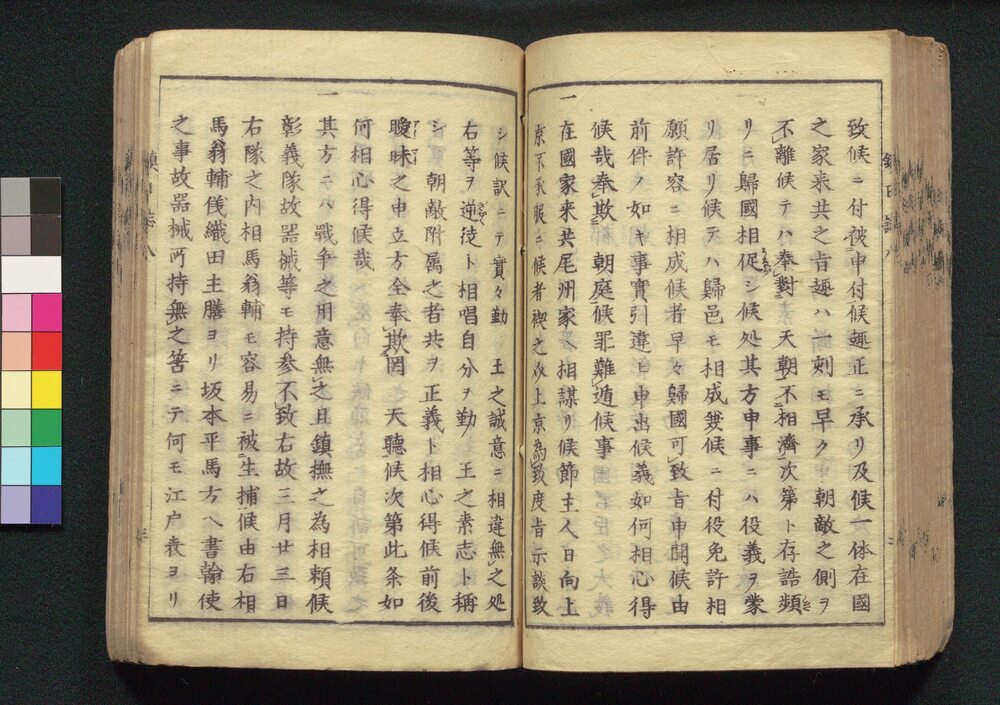 致候ニ付被申付候趣正ニ承リ及候一体在國
之家来共之旨趣ハ一刻モ早ク 朝敵之側ヲ
不離候テハ奉對 天朝不相濟次第ト存詰頻
リニ歸國相促シ候処其方申事ニハ役義ヲ蒙
リ居リ候テハ歸邑モ相成兼候ニ付役免許相
願許容ニ相成候者早々歸國可致旨申聞候由
前件ノ如キ事實引違ヒ申出候義如何相心得
候哉奉欺 朝庭候罪難遁候事
一
在國家来共尾州家ヘ相謀リ候節主人日向上
京不承服ニ候者禊之以上京為致度旨示談致
シ候訳ニテ實々勤 王之誠意ニ相違無之処
右等ヲ逆徒ト相唱自分ヲ勤 王之素志ト稱
シ 朝敵附属之者共ヲ正義ト相心得候前後
曖昧之申立方全奉欺罔 天聽候次第此条如
何相心得候哉
一
其方ニハ戰争之用意無之且鎮撫之為相頼候
彰義隊故器械等モ持参不致右故三月廿三日
右隊之内相馬翁輔モ容易ニ被生捕候由右相
馬翁輔伐織田主膳ヨリ坂本平馬方ヘ書翰使
之事故器械所持無之筈ニテ何モ江户表ヨリ